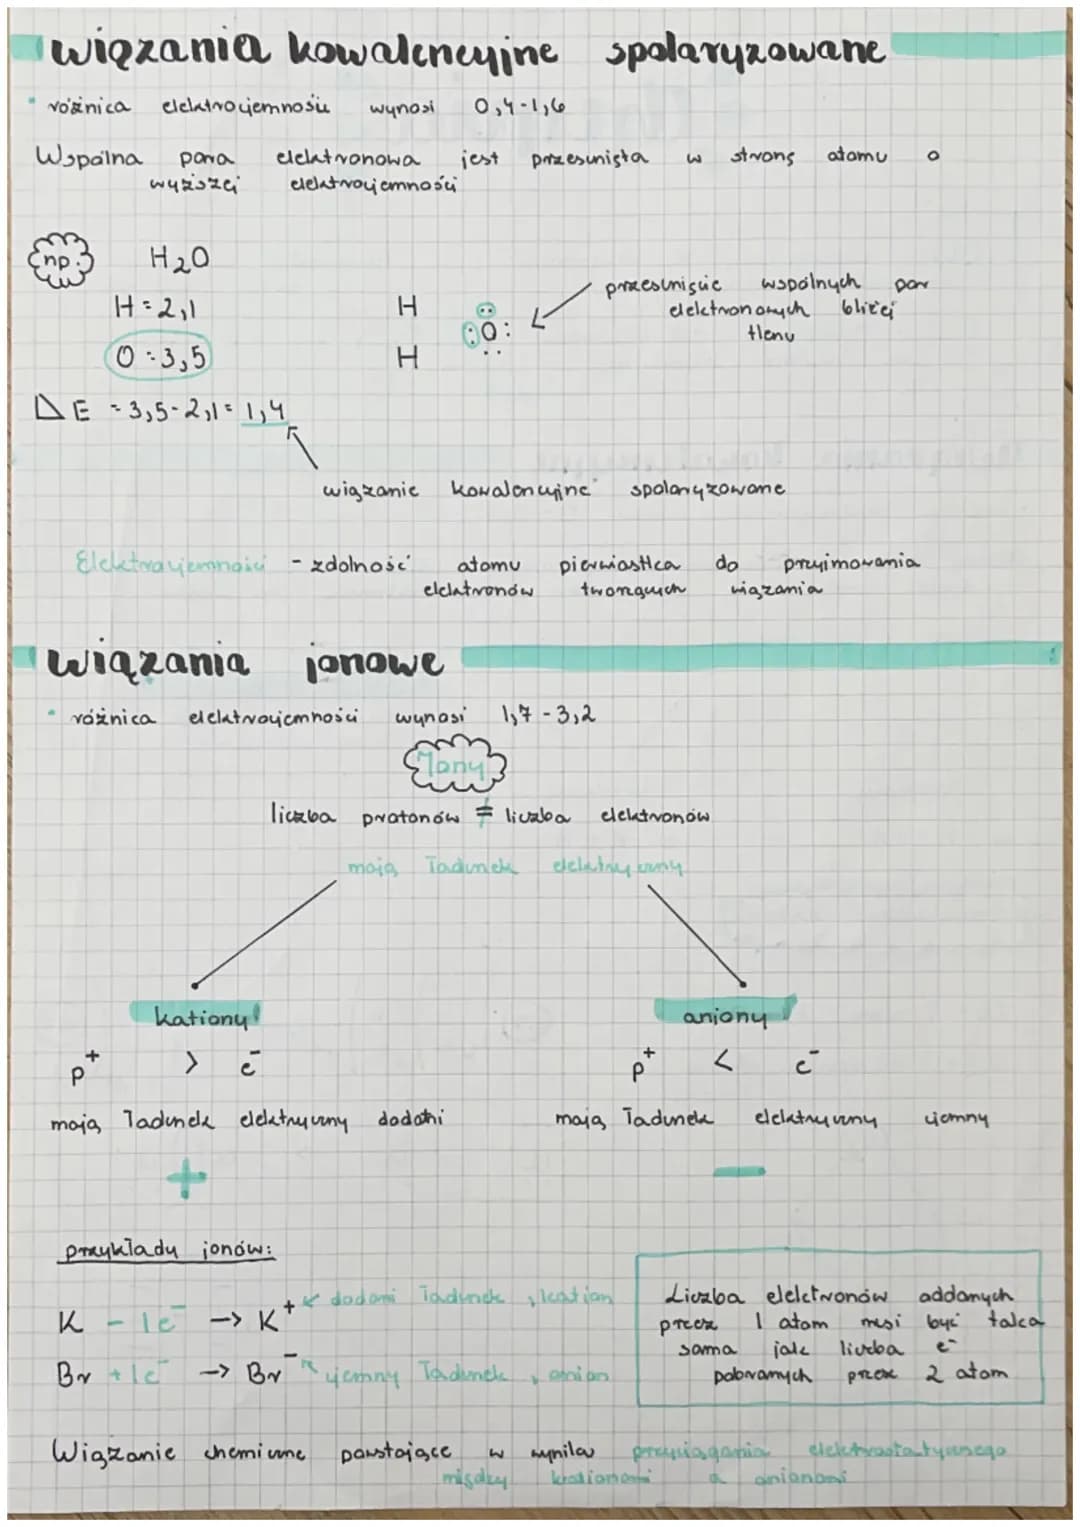 wiązania kowalencyjne spolaryzowane
• różnica elektroujemności wynosi 0,4-1,6
Wspólna para elektronowa jest przesunięta w stronę atomu o
wyższej elektroujemności
np. H₂O
H = 2,1
O = 3,5
H
:O:
H
przesunięcie wspólnych par
elektronowych bliżej
tlenu
ΔE = 3,5-2,1 = 1,4
wiązanie kowalencyjne spolaryzowane
Elektroujemność - zdolność atomu pierwiastka do przyjmowania
elektronów tworzących wiązania
wiązania jonowe
• różnica elektroujemności wynosi 1,7 - 3,2
Jony
liczba protonów ≠ liczba elektronów
mają ładunek elektryczny
kationy
p⁺ > e⁻
mają ładunek elektryczny dodatni
+
aniony
p⁺ < e⁻
mają ładunek elektryczny ujemny
−
przykłady jonów:
K - 1e⁻ → K⁺ dodatni ładunek, kation
Br + 1e⁻ → Br⁻ ujemny ładunek, anion
Liczba elektronów oddanych
przez 1 atom musi być taka
sama jak liczba e⁻
pobranych przez 2 atom
Wiązanie chemiczne powstające w wyniku przyciągania elektrostatycznego
między kationami a anionami